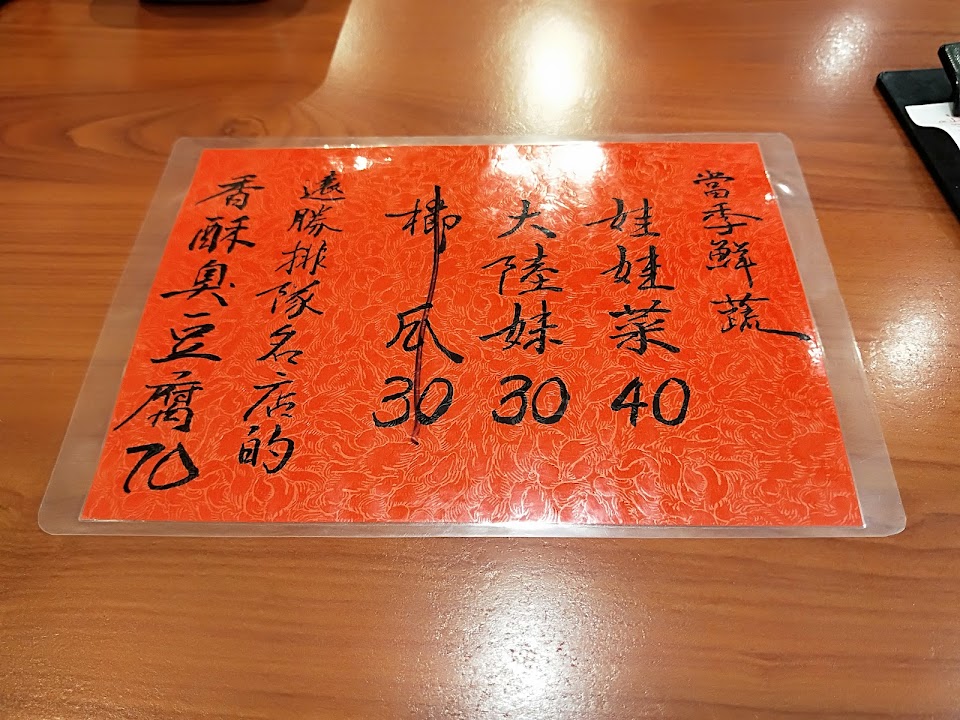 當季鮮蔬
娃娃菜 40
大陸妹 30
梻瓜 30
遠勝排隊名店的
香酥臭豆腐 70